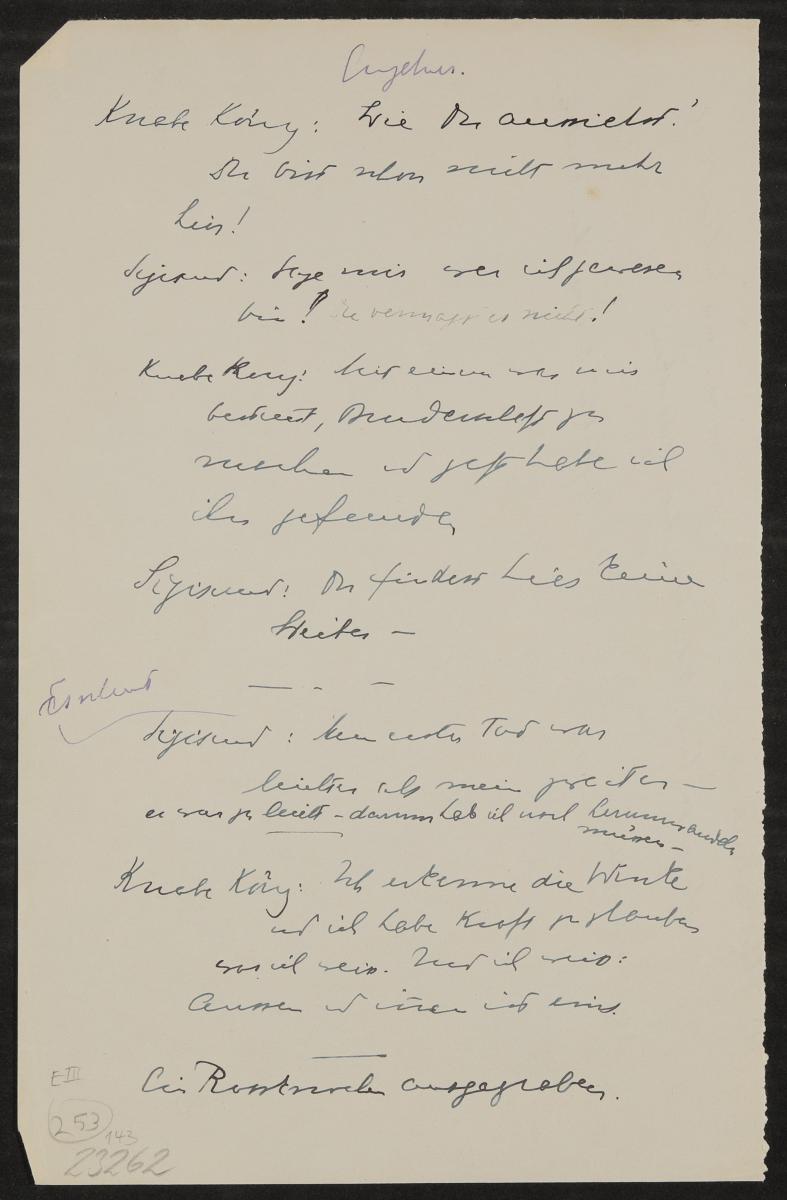 Knabe König: Wie Du aussiehst!
Du bist schon nicht mehr
hier!
Sigismund: Sage mir wer ich gewesen
bin! Du vermagst es nicht!
Knabe König: Mit einem war mir
bestimmt, Bruderschaft zu
machen und jetzt habe ich
ihn gefunden
Sigismund: Du findest hier keine
Weiber —
— - —
Sigismund: Mein erster Tod war
leichter als mein zweiter —
er war zu leicht – darum hab ich noch herumwandeln
müssen –
Knabe König: Ich erkenne die Winke
und ich habe Kraft zu glauben
was ich weiss. Und ich weiss:
Aussen und innen ist eins.
Ein Rossknochen ausgegraben.
E III
253
143
23262